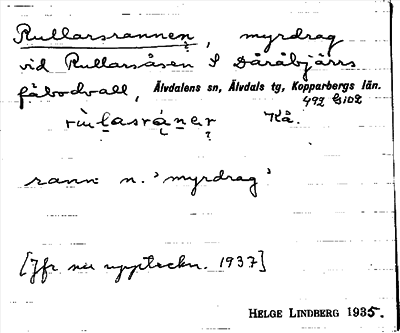 Rullarsrannen, myrdrag
vid Rullarsåsen S Dåråbjärrs
fäbodvall, Älvdalens sn, Älvdals tg, Kopparbergs län.
Kå.
rann n. 'myrdrag'
[Jfr nu uppteckn. 1937]
HELGE LINDBERG 1935.